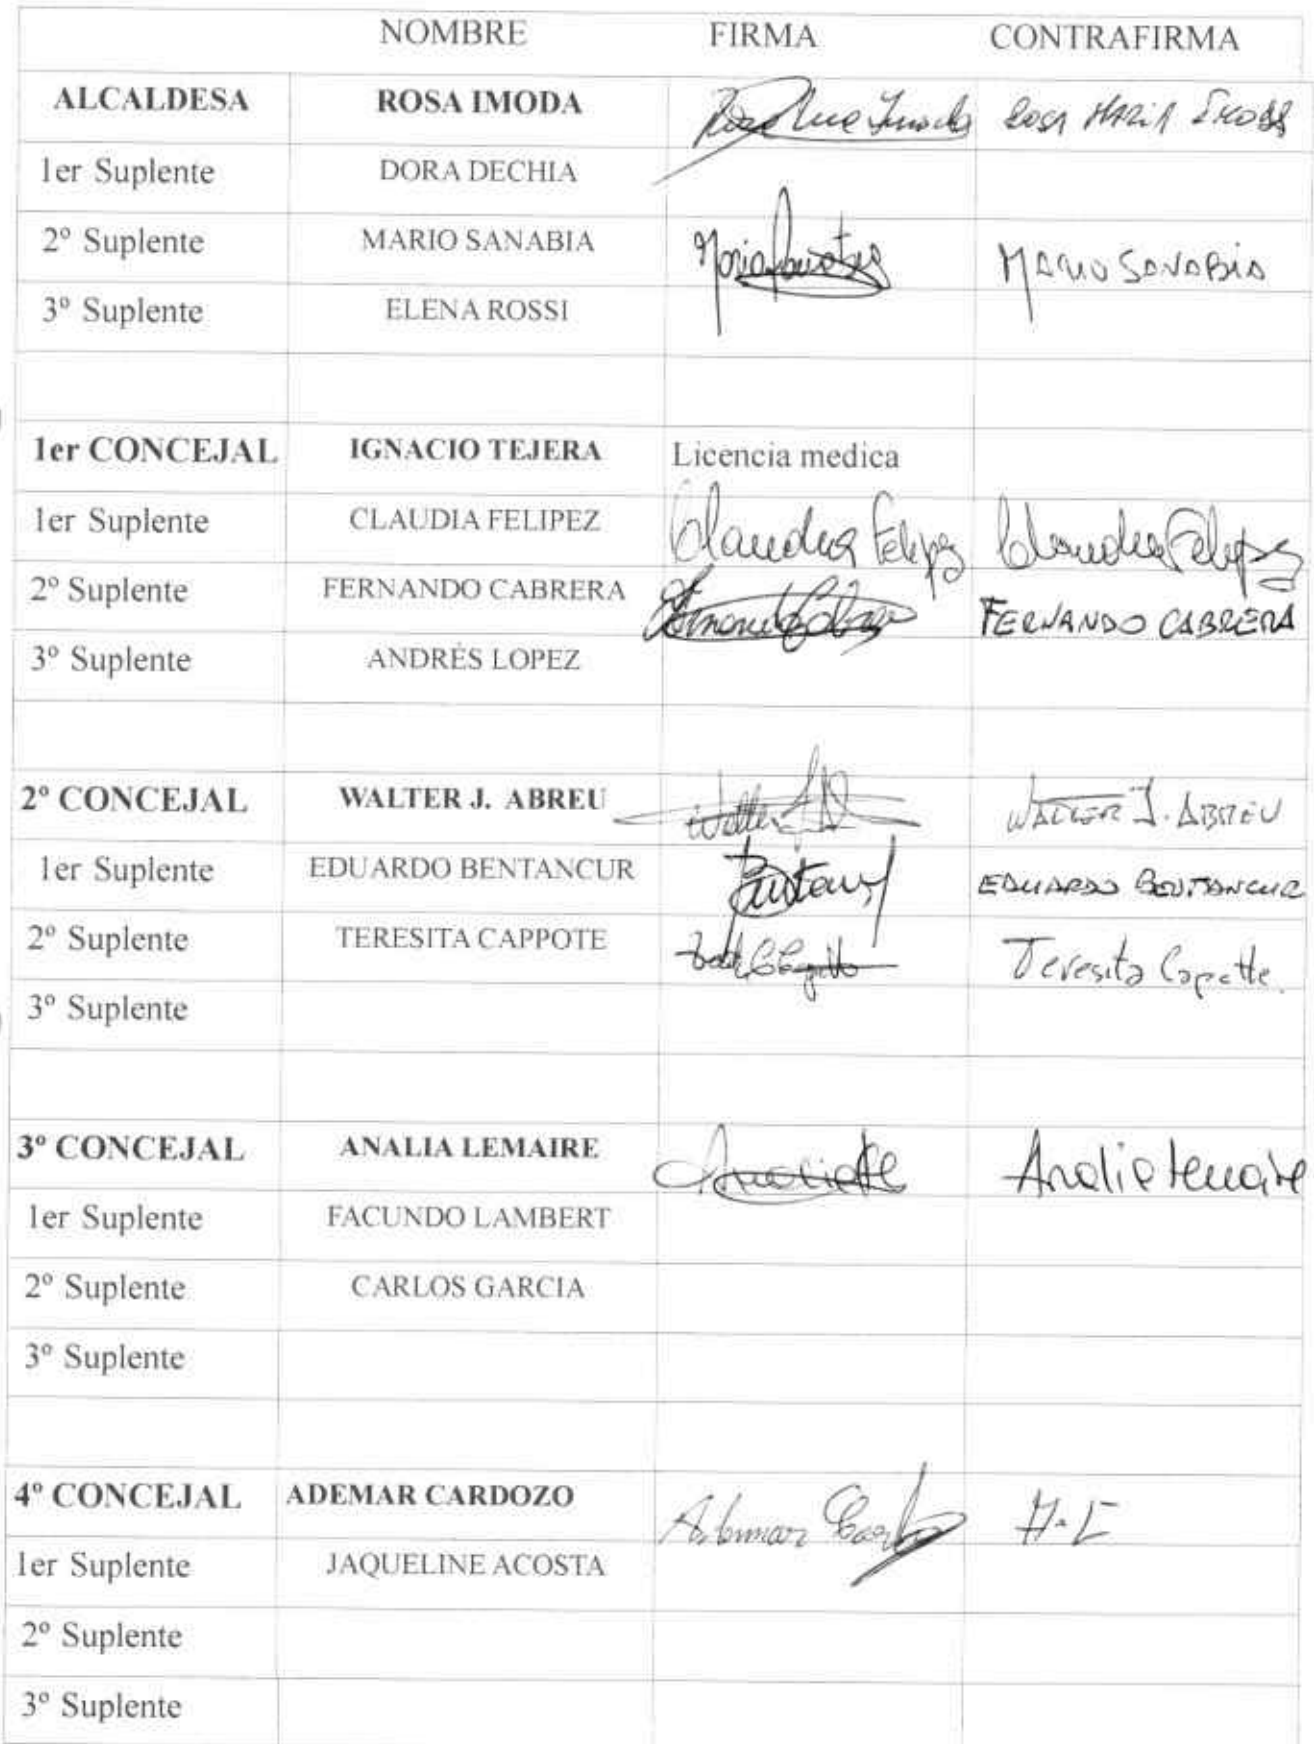 NOMBRE FIRMA CONTRAFIRMA
ALCALDESA ROSA IMODA ROSA MARIA IMODA
1er Suplente DORA DECHIA
2º Suplente MARIO SANABIA MARIO SANABIA
3º Suplente ELENA ROSSI
1er CONCEJAL IGNACIO TEJERA Licencia medica
1er Suplente CLAUDIA FELIPEZ Claudia Felipez Claudia Felipez
2º Suplente FERNANDO CABRERA FERNANDO CABRERA
3º Suplente ANDRÉS LOPEZ
2º CONCEJAL WALTER J. ABREU Walter WALTER J. ABREU
1er Suplente EDUARDO BENTANCUR EDUARDO BENTANCUR
2º Suplente TERESITA CAPPOTE Teresita Capotte.
3º Suplente
3º CONCEJAL ANALIA LEMAIRE Analia Lemaire
1er Suplente FACUNDO LAMBERT
2º Suplente CARLOS GARCIA
3º Suplente
4º CONCEJAL ADEMAR CARDOZO Ademar
1er Suplente JAQUELINE ACOSTA
2º Suplente
3º Suplente